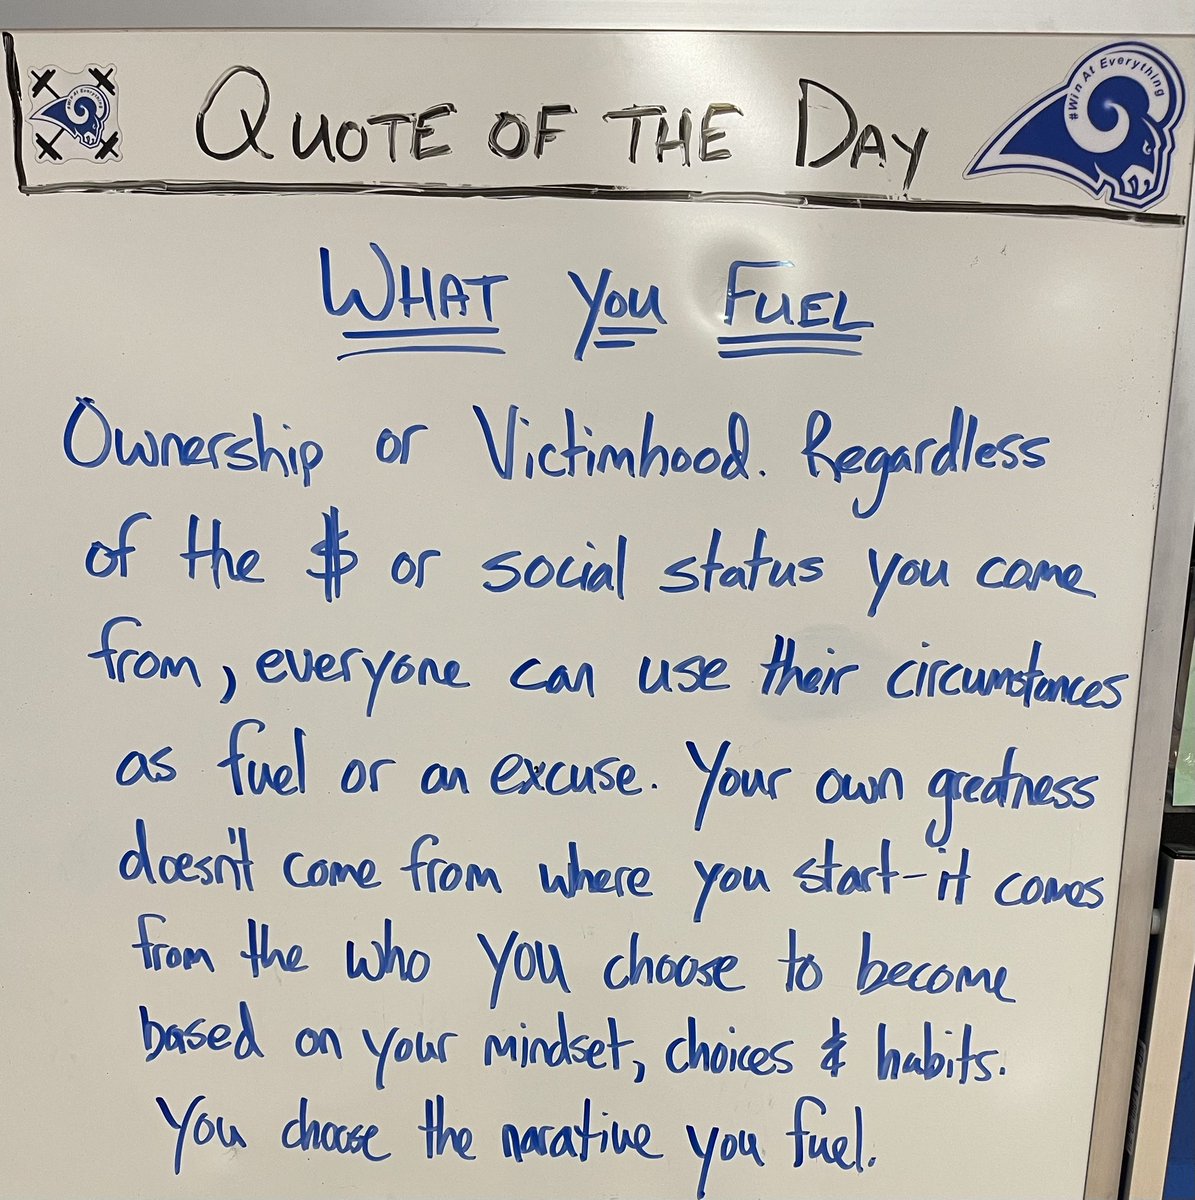 #Win At Everything
QUOTE OF THE DAY
#Win At Everything
WHAT YOU FUEL
Ownership or Victimhood. Regardless
of the $ or social status you came
from, everyone can use their circumstances
as fuel or an excuse. Your own greatness
doesn't come from where you start-it comes
from the who you choose to become
based on your mindset, choices & habits.
You choose the narative you fuel.